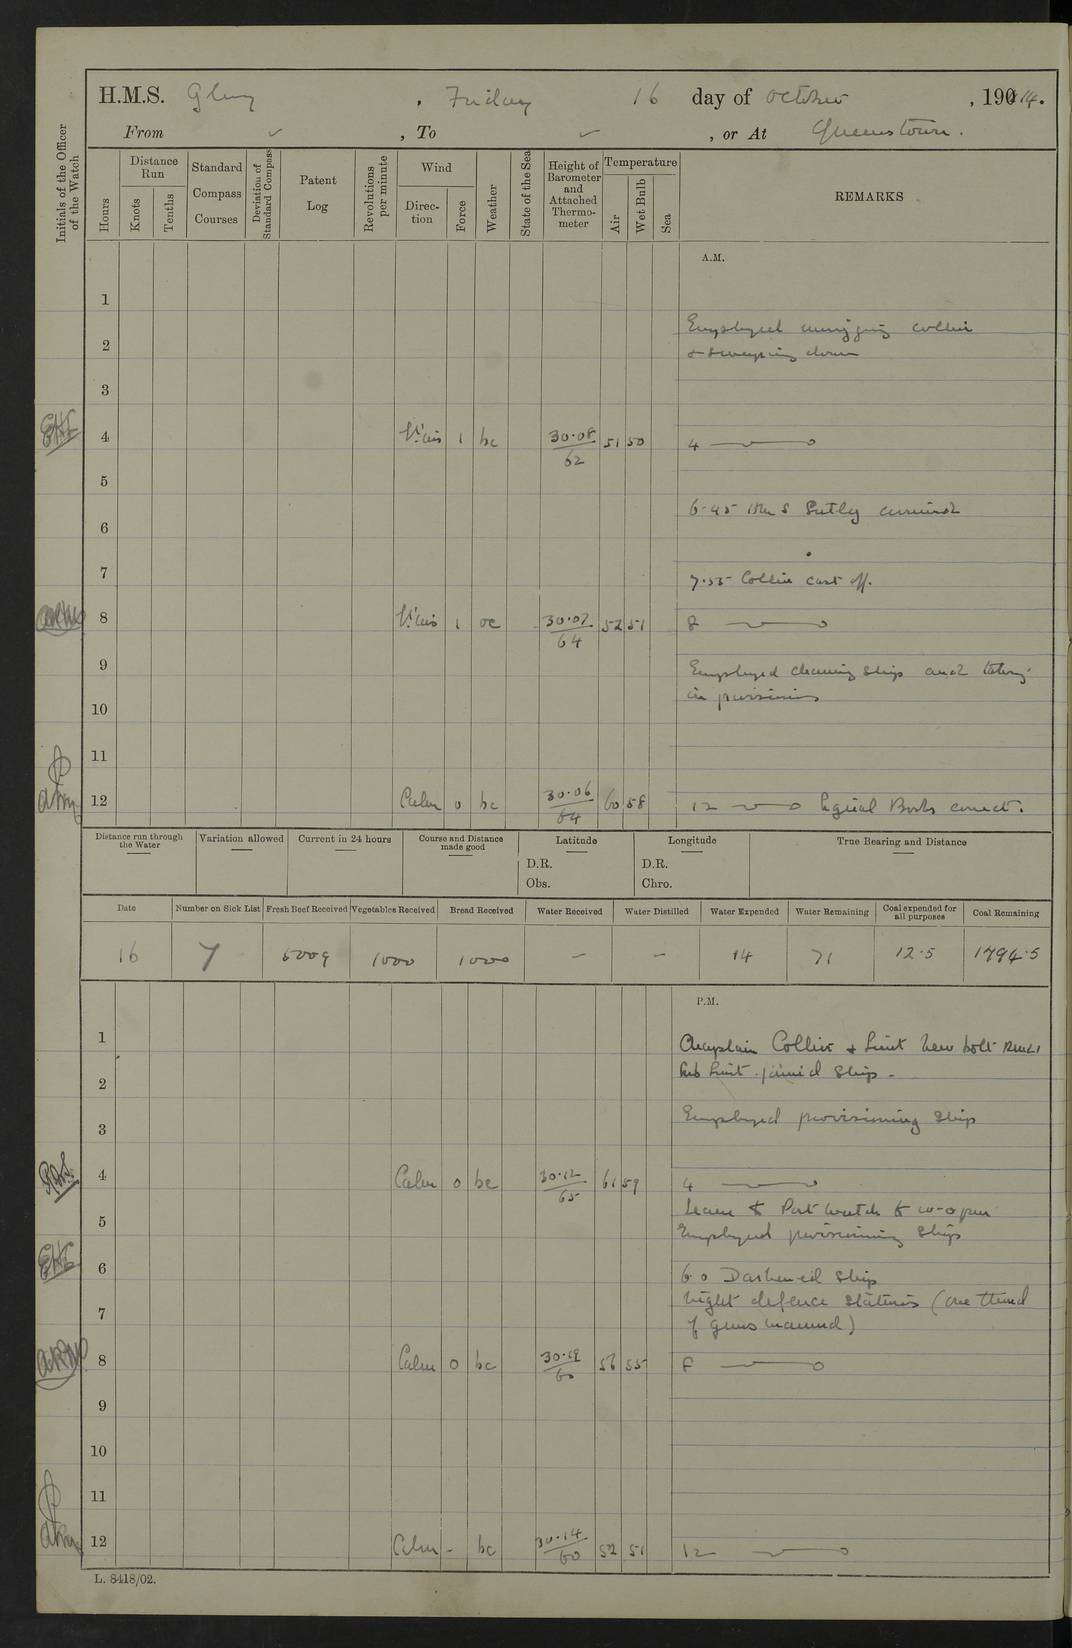 H.M.S. Glory, Friday 16 day of October, 190 14.
From ✓, To ✓, or At Queenstown.
Initials of the Officer of the Watch
Hours
Distance Run
Knots
Tenths
Standard Compass Courses
Deviation of Standard Compass
Patent Log
Revolutions per minute
Wind
Direction
Force
Weather
State of the Sea
Height of Barometer and Attached Thermometer
Temperature
Air
Wet Bulb
Sea
REMARKS
A.M.
1
Employed unrigging collier
2
& sweeping down
3
4 V'ais 1 bc 30.08/62 51 50 4
5
6.45 HMS Sutlej arrived
6
7
7.55 Collier cast off.
8 V'ais 1 oc 30.07/64 52 51 8
9
Employed cleaning ship and taking
in provisions
10
11
12 Calm 0 bc 30.06/64 60 58 12 Signal Books correct.
Distance run through the Water
Variation allowed
Current in 24 hours
Course and Distance made good
Latitude
D.R.
Obs.
Longitude
D.R.
Chro.
True Bearing and Distance
Date Number on Sick List Fresh Beef Received Vegetables Received Bread Received Water Received Water Distilled Water Expended Water Remaining Coal expended for all purposes Coal Remaining
16 7 5009 1000 1000 – – 14 71 12.5 1794.5
P.M.
1
Chaplain Collier & Lieut Newbolt RMLI
Sub Lieut joined Ship.
2
Employed provisioning ship
3
4 Calm 0 bc 30.12/65 61 59 4
Leave to Port watch to
5
Employed provisioning ship
6
6.0 Darkened ship
Night defence stations (one third
7
of guns manned)
8 Calm 0 bc 30.12/60 56 55 8
9
10
11
12 Calm - bc 30.14/60 52 51 12
L. 8418/02.